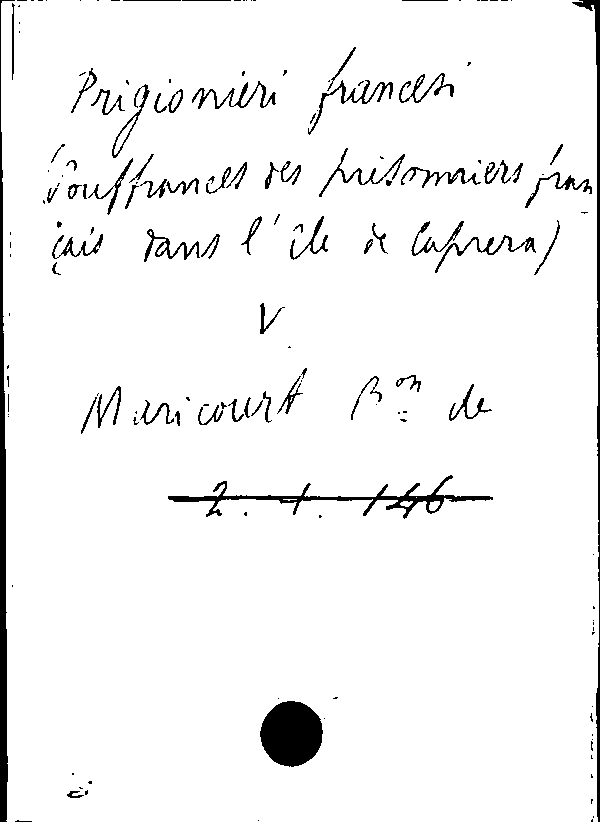 Prigionieri francesi
(Souffrances des prisonniers fran
çais dans l'île de Caprera)
V
Maricourt Bon de
2. 1. 146